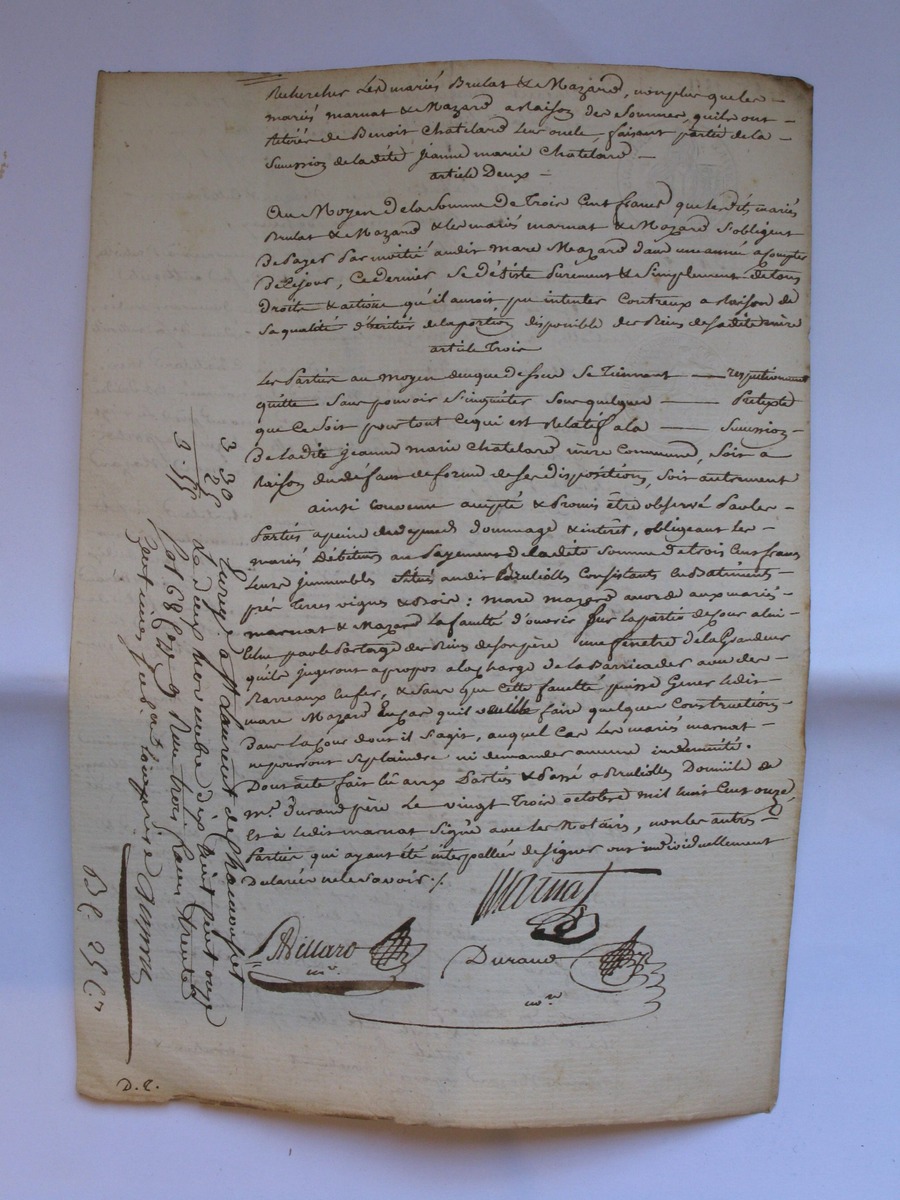 Rechercher les mariés Brulat & Mazard, non plus que les
mariés marnat & Mazard a Raison des Sommes, qu'ils ont
Retirés de Benoit Chatelard leur oncle faisant partie de la
Succession de ladite jeanne marie Chatelard
article Deux
Au Moyen de la Somme de Trois Cent francs que lesdits mariés
Brulat & Mazard & les mariés marnat & Mazard S'obligent
De Payer Par moitié audit marc Mazard dans une année a Compter
De Ce jour, Ce dernier Se désiste Purement & Simplement de tous
Droits & actions qu'il auroit pu intenter Contr'eux a Raison de
Sa qualité d'héritier de la portion disponible des Biens de Sadite mère
article Trois
Les Parties au moyen de que dessus Se Tiennent respectivement
quitte Sans pouvoir S'inquiéter Sous quelque Pretexte
que Ce Soit pour tout Ce qui est Relatif a la Succession
De ladite jeanne marie Chatelard mère Commune, Soit a
Raison du défaut de forme de Ses dispositions, Soit autrement
ainsi Convenu accepté & Promis être observé Par les
Parties a peine de dépens dommage & interet, obligeant les
mariés Débiteurs au Payement de ladite Somme de trois Cent francs
Leurs immeubles Situés audit Brulioles Consistants en Batiments
prés Terres vignes & Bois : marc mazard accorde aux mariés
marnat & Mazard la faculté d'ouvrir Sur la partie de Cour a lui
Echue par le Partage des Biens de Son père une fenêtre de la Grandeur
qu'ils jugeront a propos a la Charge de la Barricader avec des
Barreaux de fer, & Sans que Cette faculté puisse Gener ledit
marc Mazard En Cas qu'il veuille faire quelque Construction
Dans la Cour dont il S'agit, auquel Cas les mariés marnat
ne pourront Se plaindre ni demander aucune indemnité.
Dont acte fait lû aux Parties & Passé a Brulioles Domicile de
m.e Durand père Le vingt Trois octobre mil huit Cent onze
Et à ledit marnat Signé avec les Notaires, non les autres
Parties qui ayant été interpellées de signer ont individuellement
Déclarée ne le Savoir ./.
Marnat
Villard
nre
Durand
nre
3 30
25
3 . 55
Enreg.é a St Laurent de Chamousset
Le deux novembre dix huit cent onze
fol 68 Reçu trois francs trente
Centimes
Be 25 Cs
D. 2.